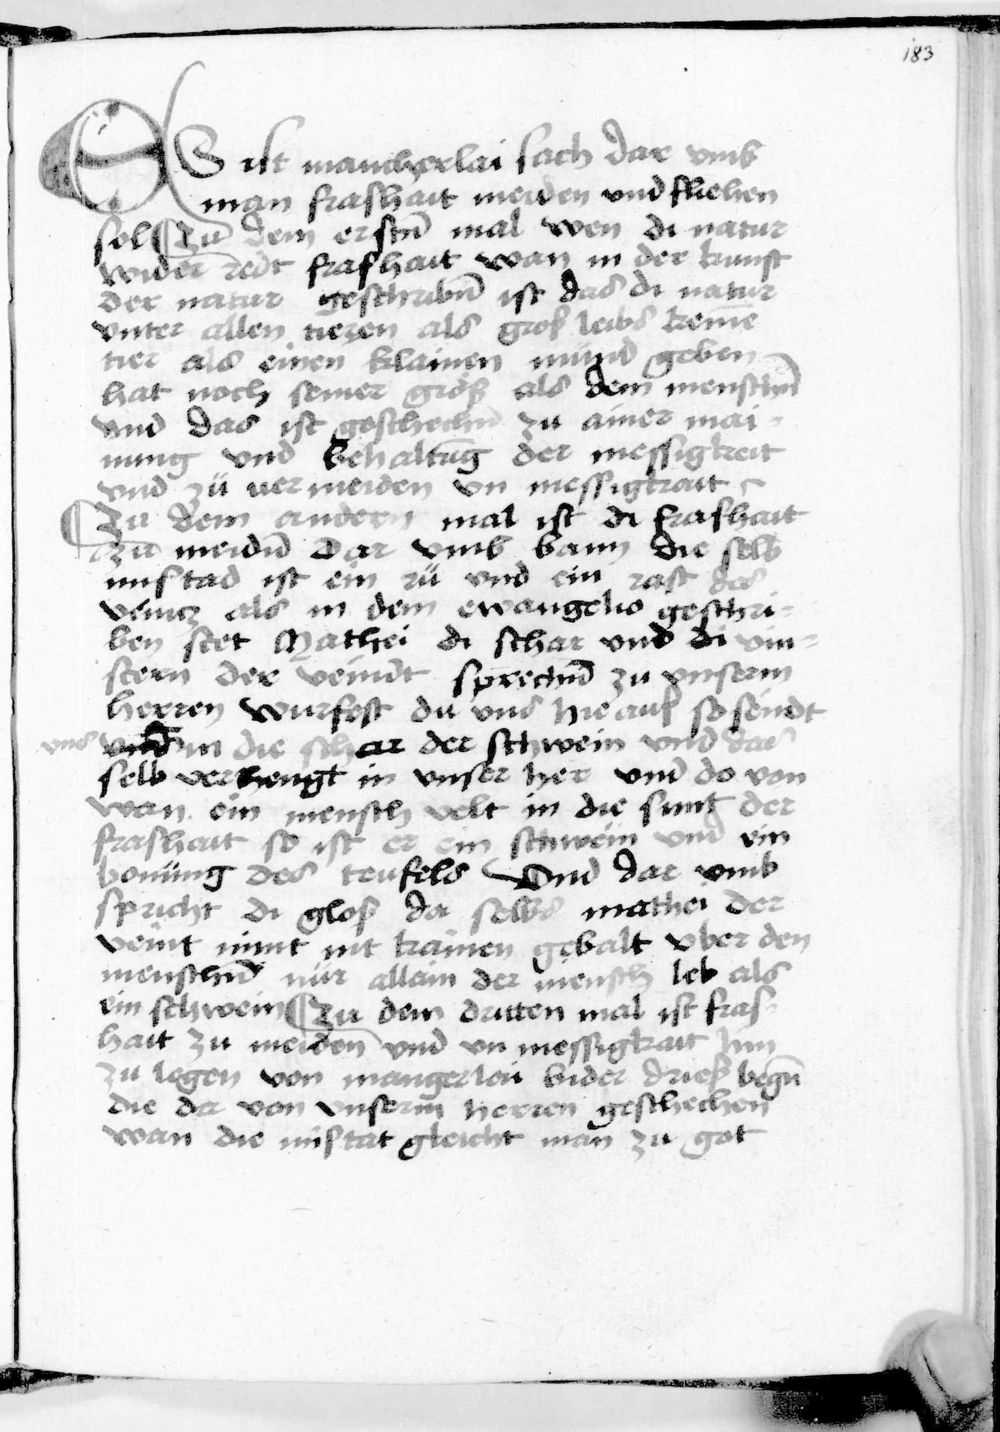 183
ES ist mancherlai sach dar vmb
man frashait meiden vnd fliehen
sol Zu dem erstn̄ mal wen di natur
wider redt frashait wan in der kunst
der natur geschribn̄ ist das di natur
vnter allen tieren als groß leibs keinē
tier als einen klainen mund geben
hat noch seiner größ als dem menschn̄
vnd das ist geschechn̄ zu ainer mai-
nung vnd behaltūg der messigkeit
vnd zü uermeiden vn messigkait
Zu dem andern mal ist di frashait
zu meidn̄ Dar vmb bann die selb
misstad ist ein rü vnd ein rast des
veintz als in dem ewangelio geschri-
ben stet Mathei di schar vnd di vin-
stern der veindt sprechn̄ zu vnserm
herren wurfest du vns hie auß so sendt
vns in die schar der schwein vnd das
selb verhengt in vnser her vnd do von
wan ein mensch velt in die sunt der
frashait so ist er ein schwein vnd ein
bonüng des teufels Vnd dar vmb
spricht di gloß da selbs mathei der
veint nimt nit kainen gebalt vber den
menschn̄ nür allain der mensch leb als
ein schwein Zu dem dritten mal ist fras-
hait zu meiden vnd vn messigkait hin
zu legen von mangerleii bider drieß begn̄
die da von vnserm herren geschechen
wan die misstat gleicht man zu got